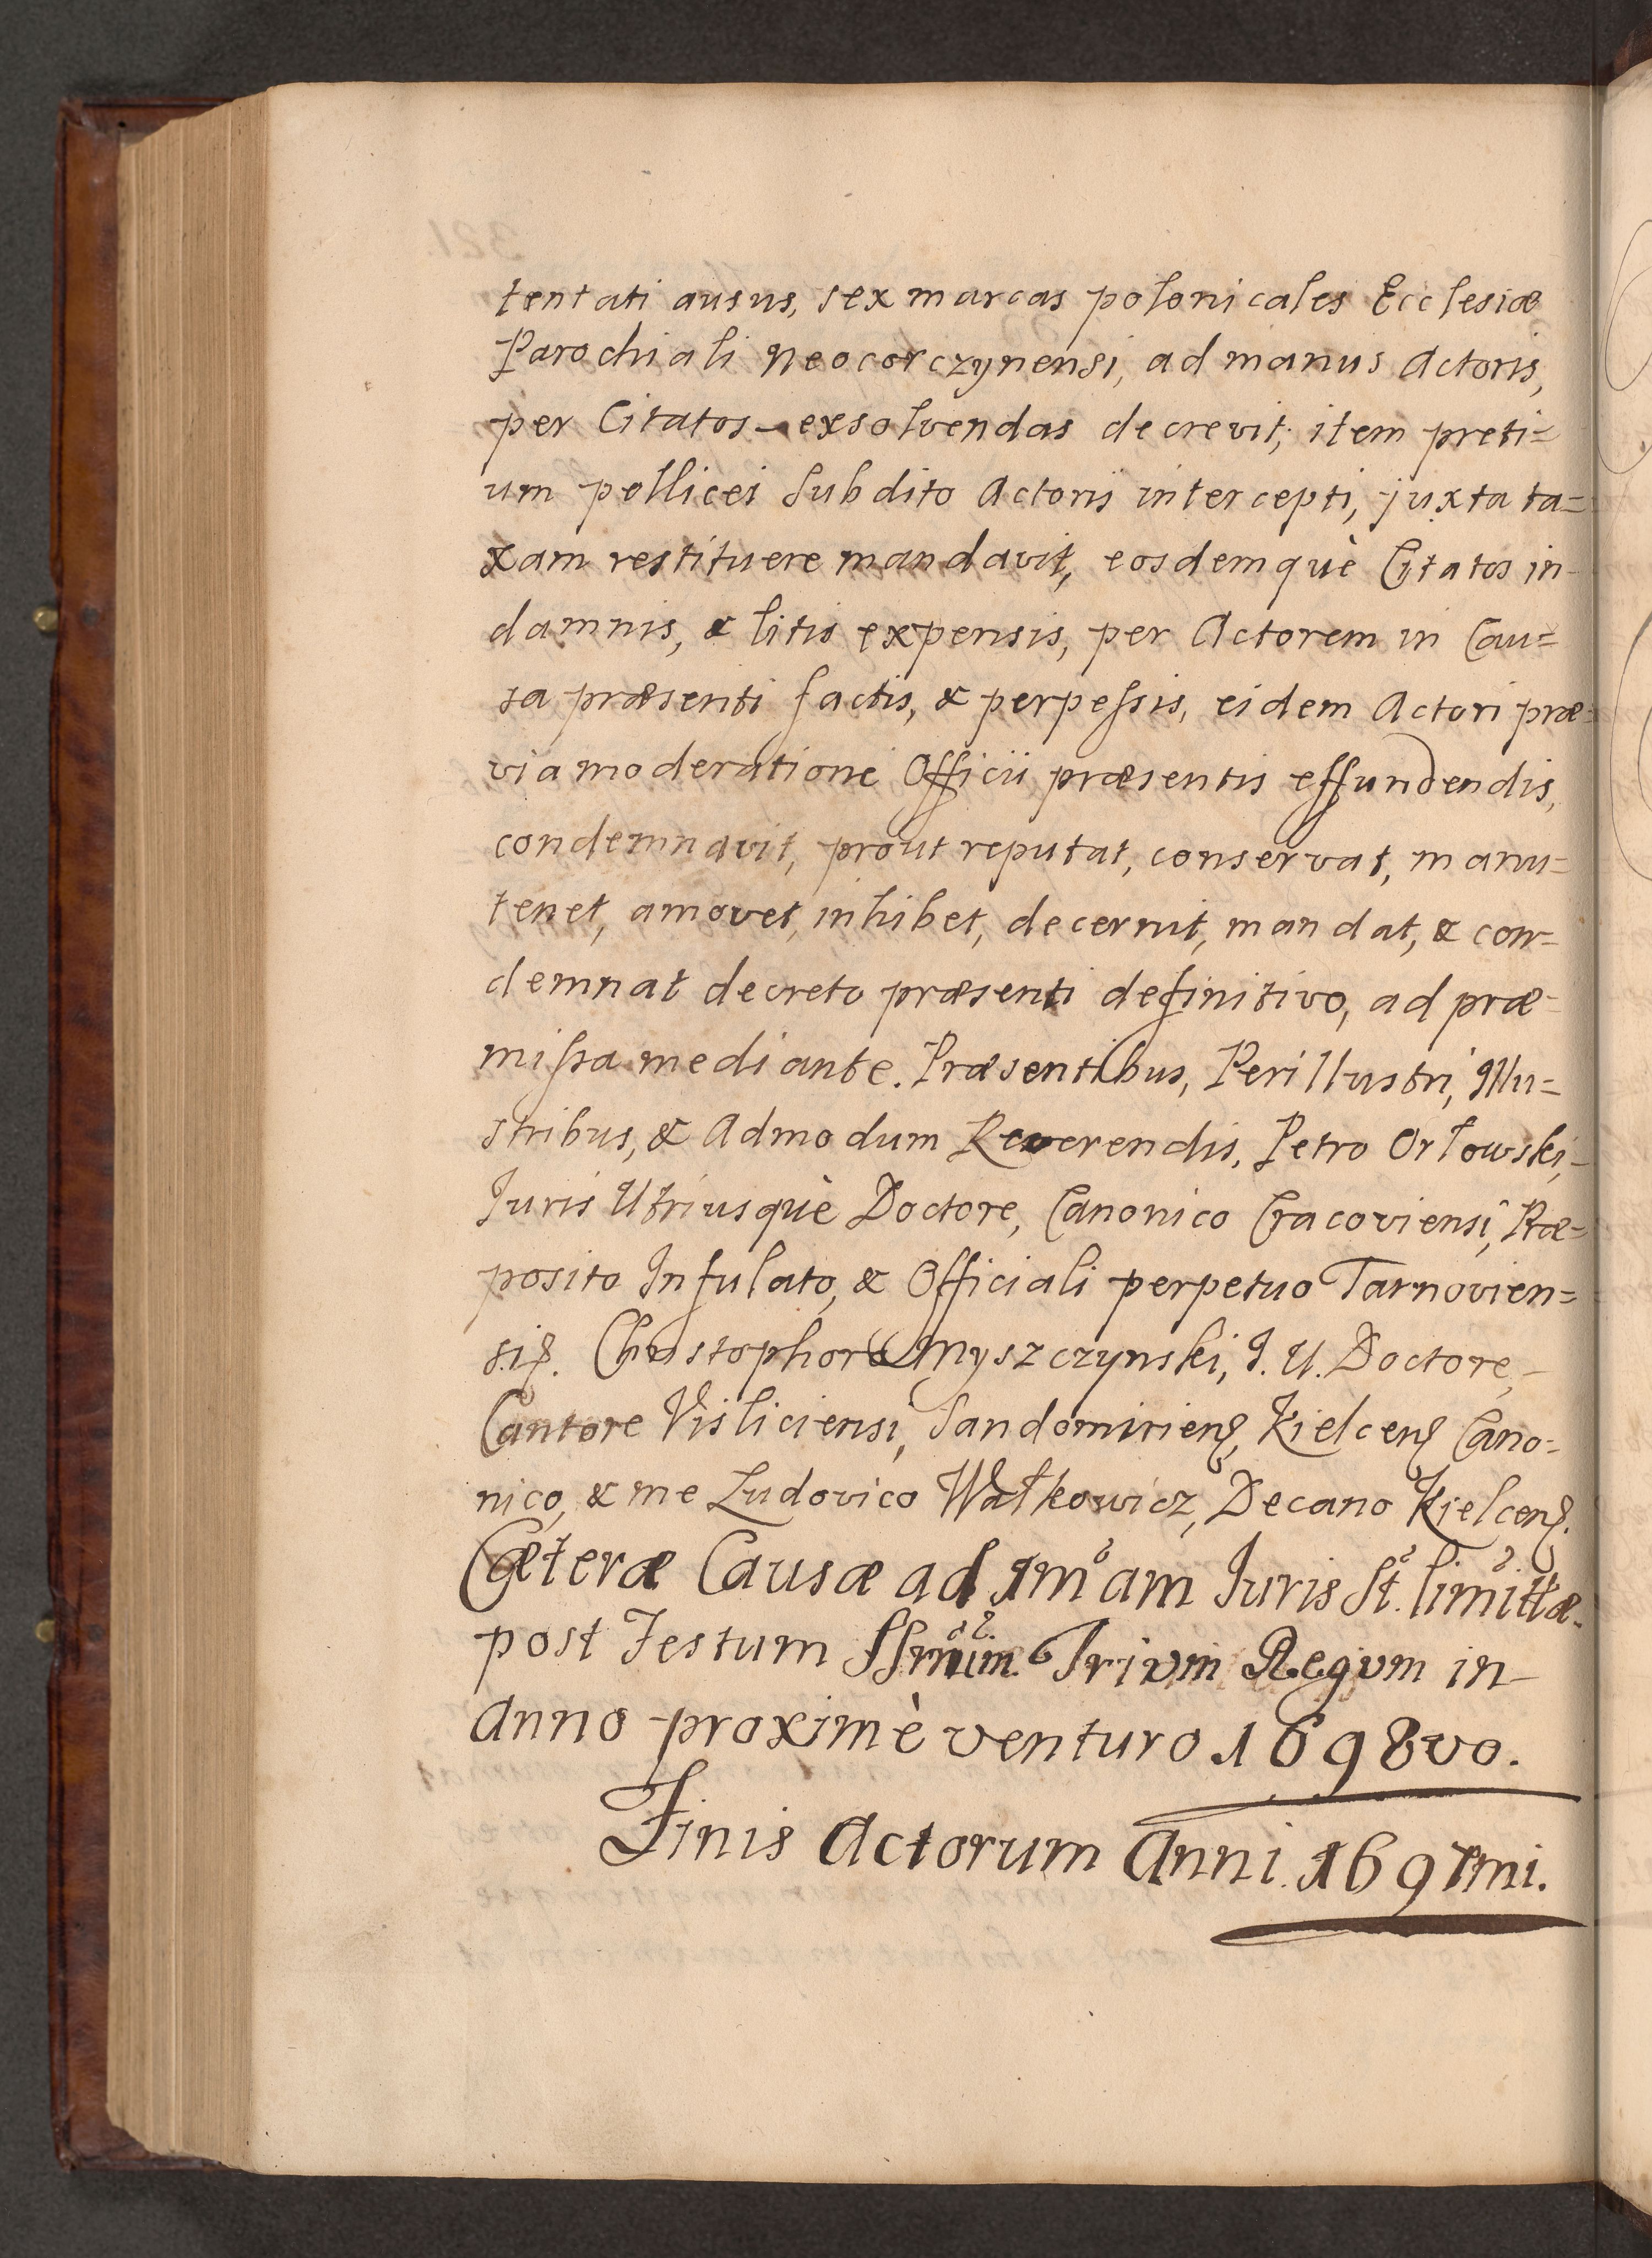 tentati ausus, sex marcas polonicales Ecclesiæ
Parochiali Neocorczynensi, ad manus Actoris,
per Citatos exsolvendas decrevit; item preti=
um pollicei Subdito Actoris intercepti, juxta ta=
xam restituere mandavit, eosdemquè Citatos in
damnis, & litis expensis, per Actorem in Cau=
sa præsenti factis, & perpessis, eidem Actori præ=
via moderatione Officii præsentis effundendis,
condemnavit, proùt reputat, conservat, manu=
tenet, amovet, inhibet, decernit, mandat, & con=
demnat decreto præsenti definitivo, ad præ=
missa mediante. Præsentibus, Perillustri, Illu=
stribus, & Admodum Reverendis, Petro Orłowski,
Juris Utriusquè Doctore, Canonico Cracoviensi, Præ=
posito Infulato, & Officiali perpetuo Tarnovien=
si. Christophoro Myszczynski, J. U. Doctore,
Cantore Visliciensi, Sandomirien, Kielcen Cano=
nico, & me Ludovico Wałkowicz, Decano Kielcen.
Cæteræ Causæ ad 1mam Juris St. limittæ.
post Festum SSrmum Trium Regum in
Anno proximè venturo 1698vo.
Finis Actorum Anni 1697mi.